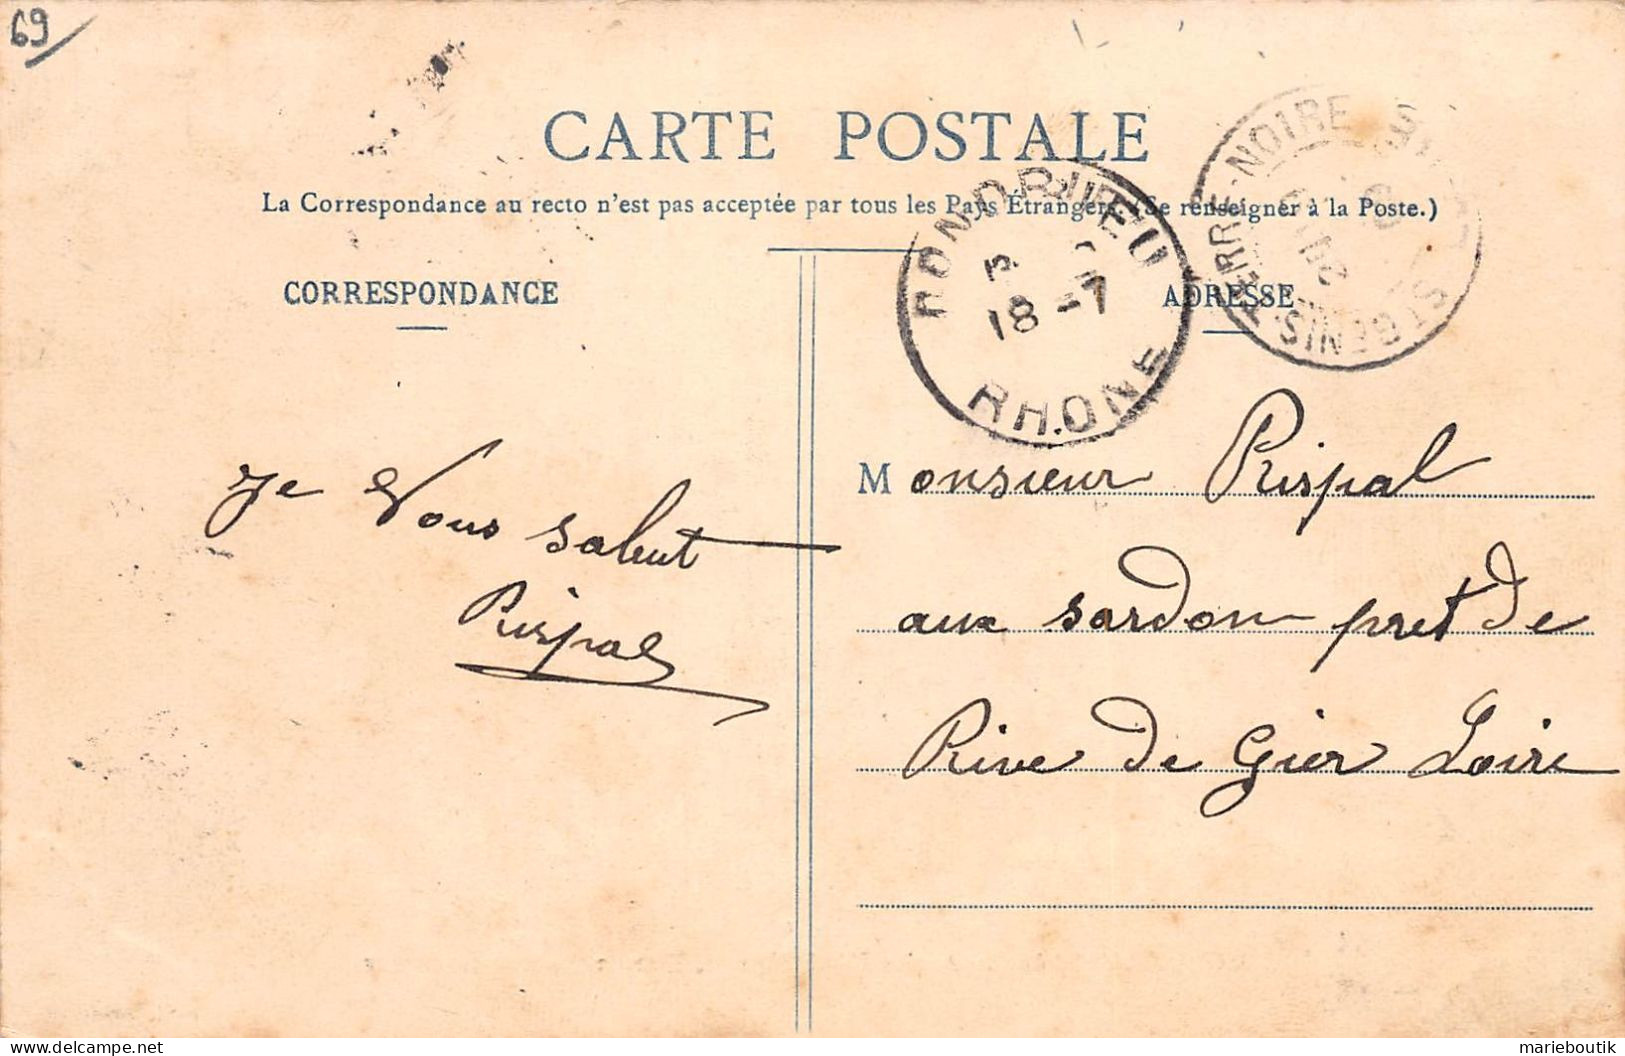 69
CARTE POSTALE
La Correspondance au recto n'est pas acceptée par tous les Pays Étrangers. (Se renseigner à la Poste.)
CORRESPONDANCE
ADRESSE
CONDRIEU
18 -7
RHONE
TERRE-NOIRE
ST GENIS
Je Vous salut
Rispal
Monsieur Rispal
aux sardon pret de
Rive de Gier Loire
marieboutik